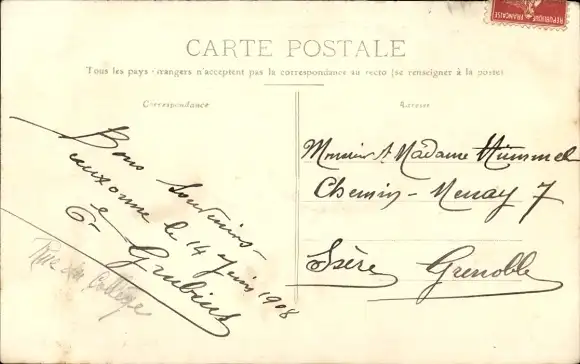 RÉPUBLIQUE FRANÇAISE
CARTE POSTALE
Tous les pays étrangers n'acceptent pas la correspondance au recto (se renseigner à la poste)
Correspondance
Bons Souvenirs
auxonne le 14 Juin 1908
Grubius
Rue du Collège
Adresse
Monsieur & Madame Hümmel
Chemin - Menay 7
Isère Grenoble